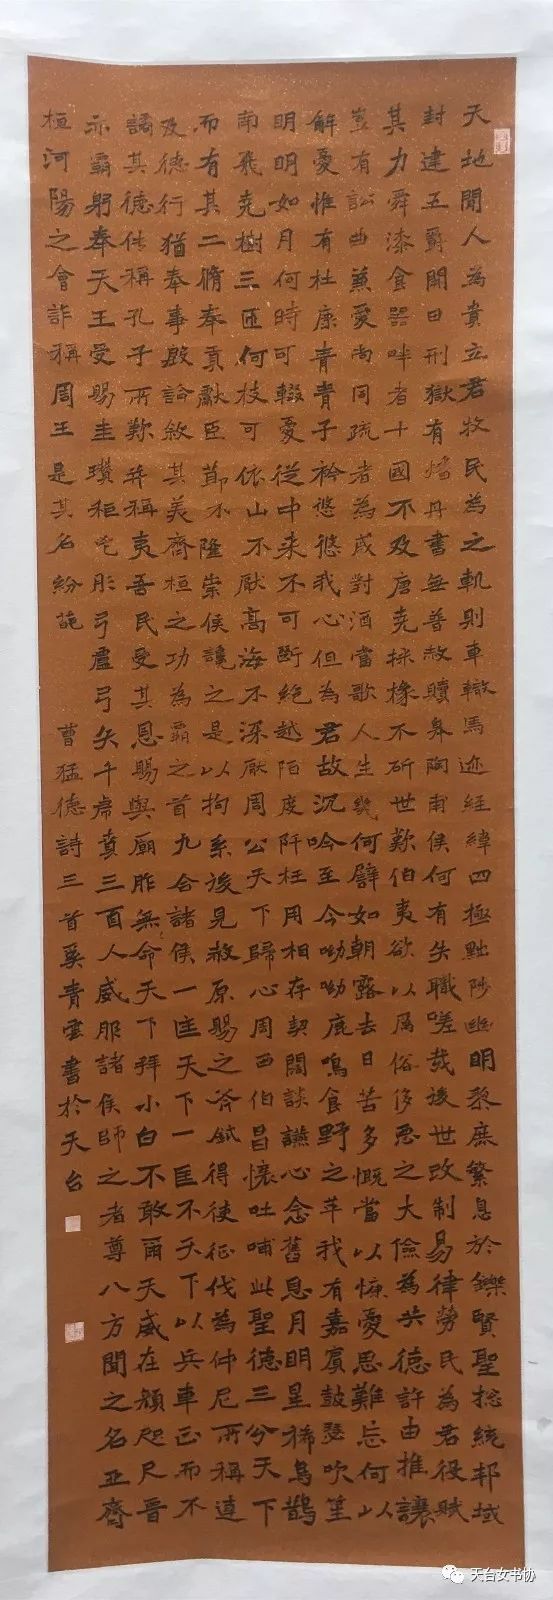 天地閒人為貴立君牧民為之軌則車轍馬迹経緯四極黜陟幽明黎庶繁息於鑠賢聖揔統邦域
封建五爵開田刑獄有燔丹書無普赦贖皋陶甫侯何有失職嗟哉後世改制易律勞民為君役賦
其力舜漆食器畔者十國不及唐堯採椽不斫世歎伯夷欲以厲俗侈惡之大儉為共德許由推讓
豈有訟曲兼愛尚同疏者為戚對酒當歌人生幾何譬如朝露去日苦多慨當以慷憂思難忘何以
解憂惟有杜康青青子衿悠悠我心但為君故沉吟至今呦呦鹿鳴食野之苹我有嘉賓鼓瑟吹笙
明明如月何時可輟憂從中来不可斷絕越陌度阡枉用相存契闊談讌心念舊恩月明星稀烏鵲
南飛堯樹三匝何枝可依山不厭高海不深厭周公天下歸心周西伯昌懷吐哺此聖德三分天下
而有其二脩奉貢獻臣節不隆崇侯讒之是以拘系後見赦原賜之斧鉞得使征伐為仲尼所稱達
及德行猶奉事殷論敘其美齊桓之功為霸之首九合諸侯一匡天下一匡不天下以兵車正而不
譎其德传稱孔子所歎并稱夷吾民受其恩賜與廟胙無命天下拜小白不敢爾天威在顏咫尺晉
亦霸躬奉天王受賜圭瓚秬鬯彤弓盧弓矢千虎賁三百人威服諸侯師之者尊八方聞之名亞齊
桓河陽之會詐稱周王是其名紛葩 曹猛德詩三首奚青雲書於天台
天台女书协